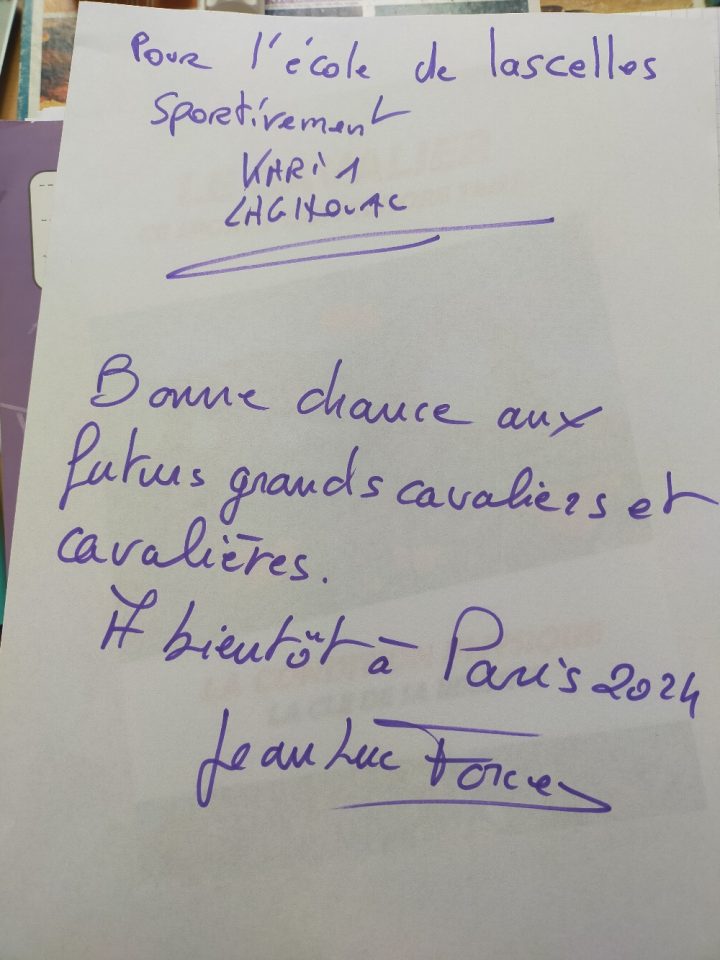 Pour l'école de lascelles
Sportivement
KARIM
LAGHOUAG
Bonne chance aux
futurs grands cavaliers et
cavalières.
A bientôt à Paris 2024
Jean Luc Force